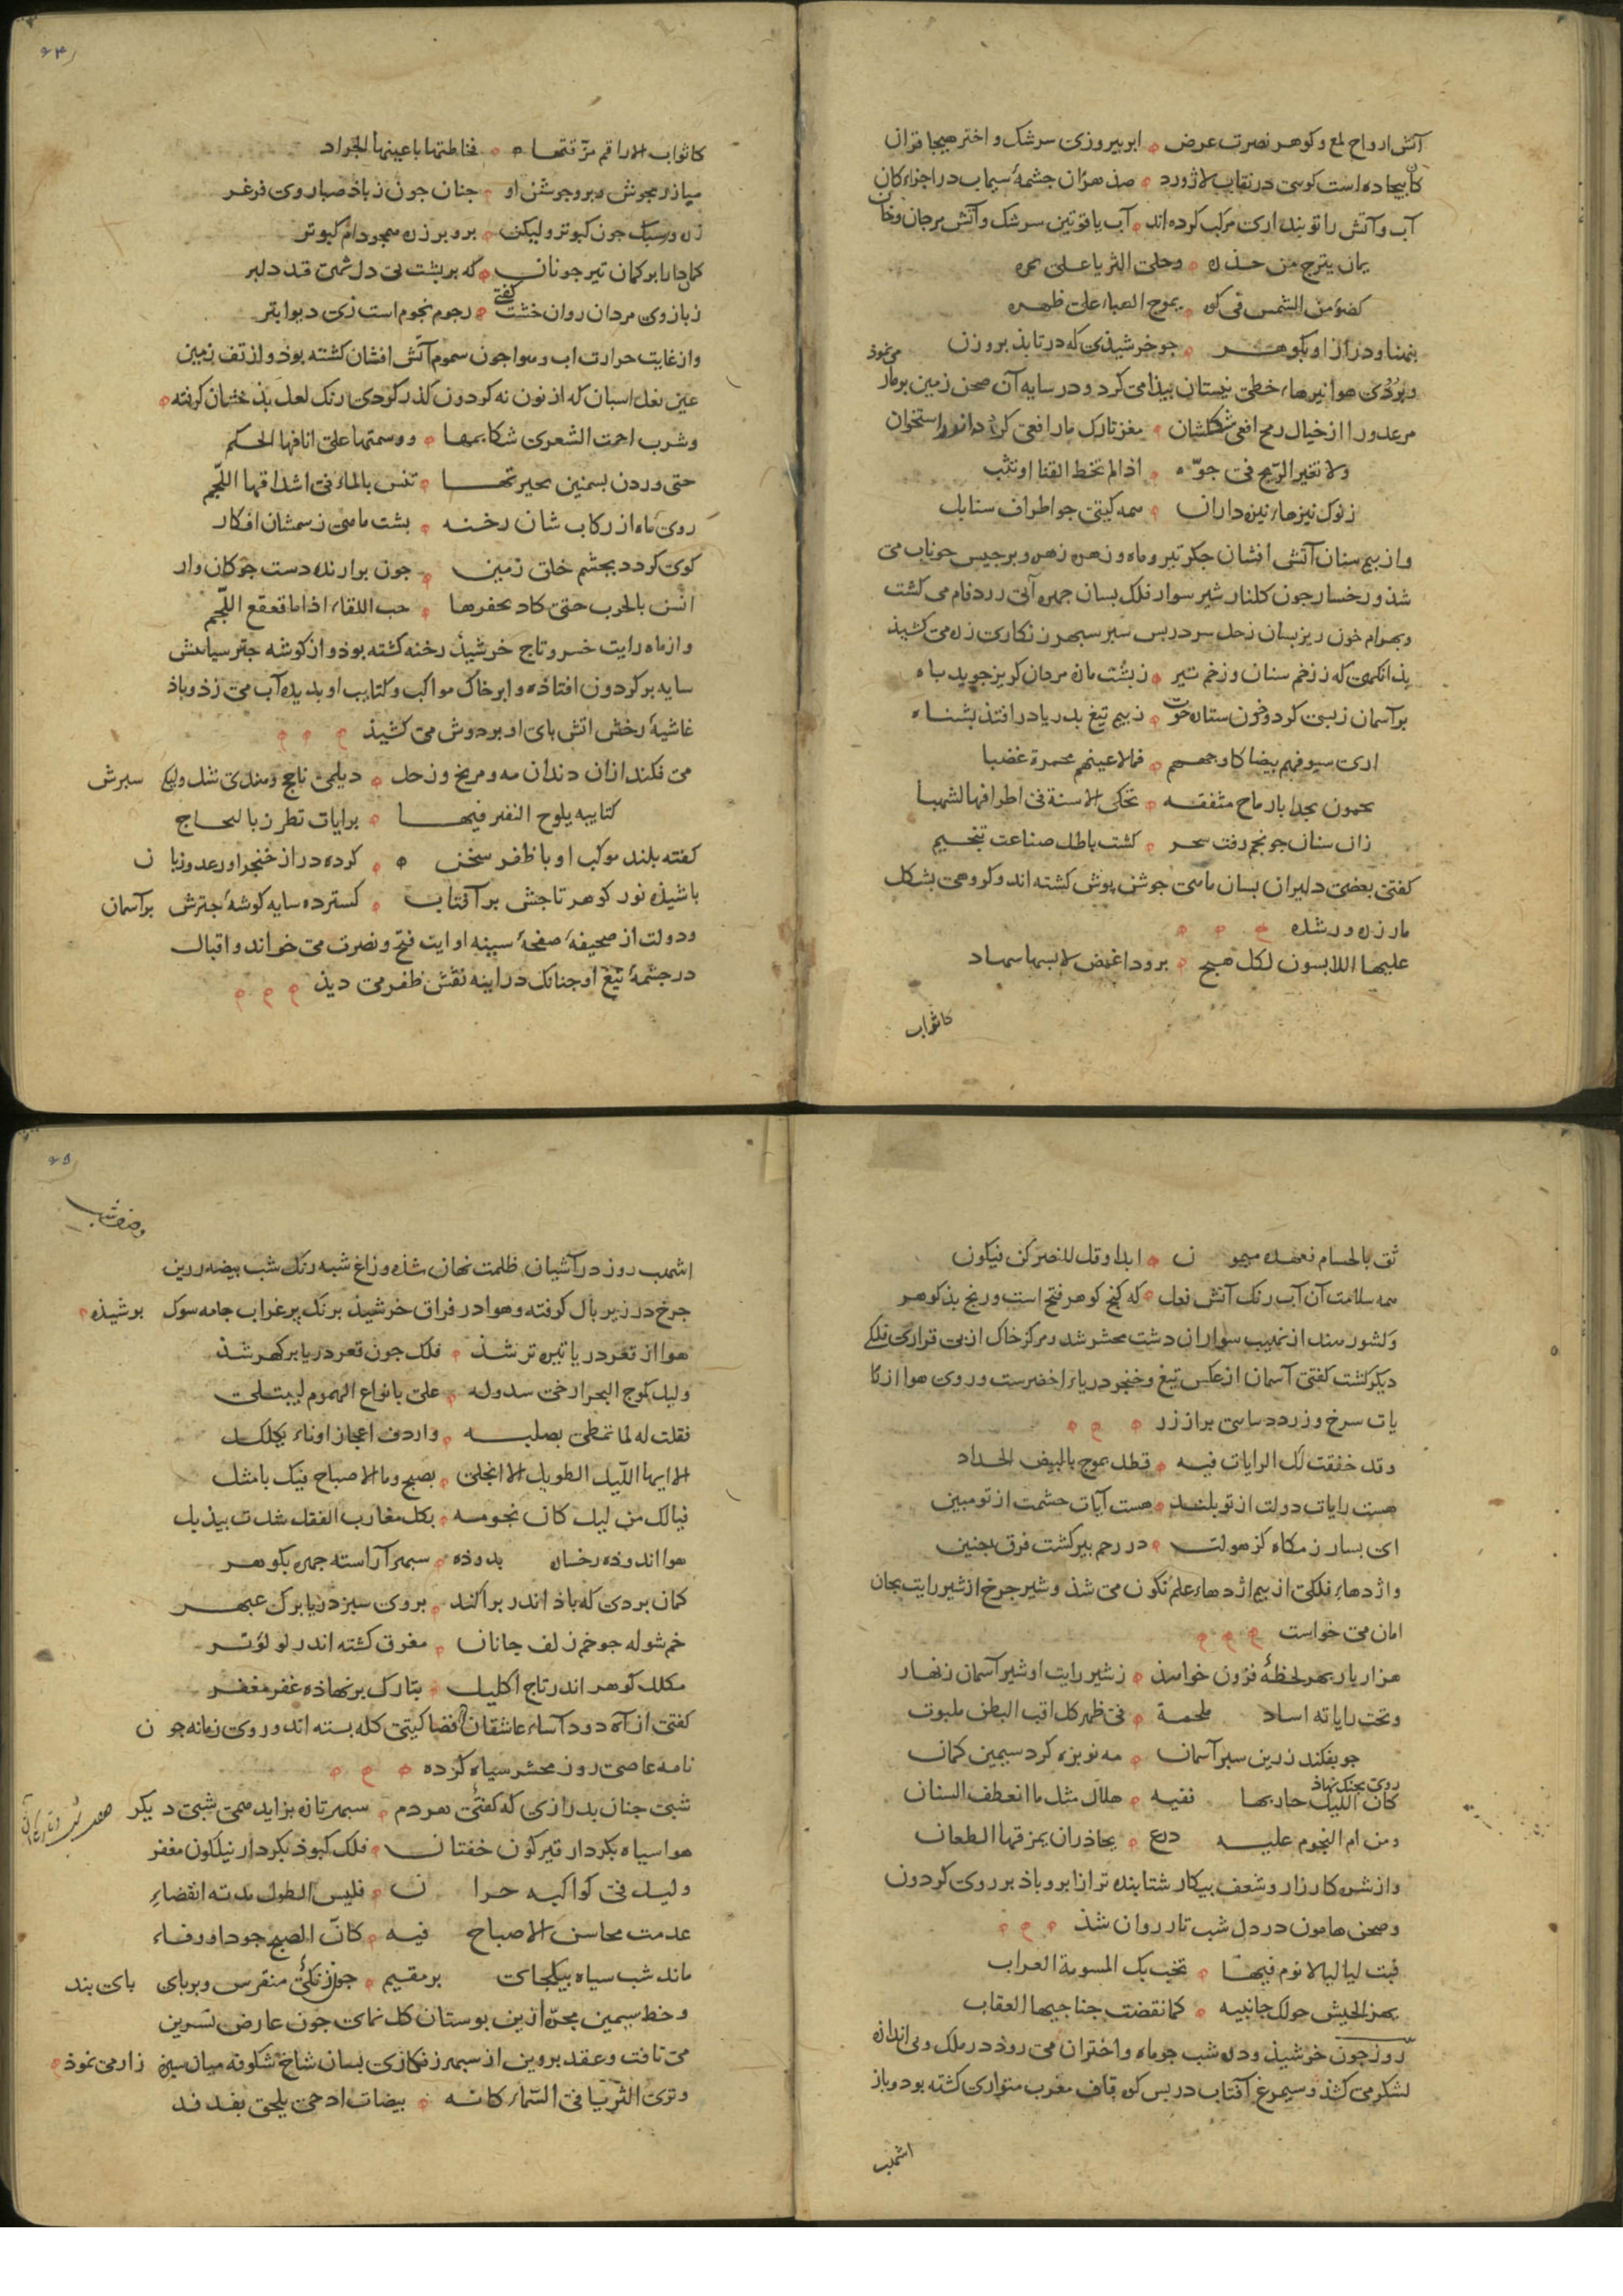 آتش ارواح لمع و کوهر نصرت عرض ابر بیروزی سرشک و اختر هیجا قران
کان بیجاده است کوسی در نقاب لاژورد صد هزان جشمهٔ سیماب در اجزاء کان
آب و آتش را تو بنداری مرکب کرده اند آب یاقوتین سرشک و آتش مرجان دخان
یمان یترج من حذه وحلی الثریا علی
کضوء من الشمس فی کوه یموج الهباء علی ظهره
بنمنا ودراز او بکوهر جو خرشیذی که درتابذ بروزن
و بروی هوا نیزهاء خطی نیستان بیذا می کرد و در سایه آن صحن زمین برمار می نموذ
مر عدو را از خیال رمح افعی شکلشان مغز تارک مار افعی کردد اندر استخوان
ولا تغیر الریح فی جوه اذا لم تخط القنا او تثب
زنوک نیزهاء نیزه داران همه کیتی جو اطراف سنابل
و از بیم سنان آتش افشان جکر تیر و ماه و زهره زهره و برجیس خوناب می
شذ و رخسار جون کلنار شیر سوار فلک بسان جمره آبی زرد فام می کشت
و بهرام خون ریز بسان زحل سر در بس سبر سبهر زنکاری زه می کشیذ
بذانکهی که ز زخم سنان و زخم تیر ز بشت مازه مردان کریز جوید باه
بر آسمان ز بسی کرد و خون ستاره حوت ز بیم تیغ بدریا در افتذ بشناه
اری سیوفهم بیضا کاوجههم فمالاعینهم محمرة غضبا
یحمون مجدا بارماح مثقفه تحکی الاسنة فی اطرافها الشهبا
زان سنان جو نجم رفت سحر کشت باطل صناعت تنجیم
کفتی بعضی دلیران بسان ماهی جوشن بوش کشته اند و کروهی بشکل
مار زره ور شده
علیها اللابسون لکل هیج برودا غمض لابسها سهاد
کاثواب
۶۴
کاثواب الاراقم مزقتها فخاطتها باعینها الجراد
میاز رمجوش و برو جوشن او جنان جون زباذ صبا روی فرغر
زره ور سبک جون کبوتر و لیکن برو بر زره همجو دام کبوتر
کماندار ابر کمان تیر جونان که بر بشت بی دل شمی قد دلبر
زبازوی مردان روان خشت کفتی رجوم نجوم است زی دیو ابتر
و از غایت حرارت اب و هوا جون سموم آتش افشان کشته بوذ و از تف زمین
عین نعل اسبان که از نون نه کردون کذر کردی رنک لعل بذخشان کرفته
وشرب احمت الشعری شکایمها ووسمتها علی انافها الحکم
حتی وردن بسمنین بحیرتها تنس بالماء فی اشداقها اللجم
روی ماه از رکاب شان رخنه بشت ماهی ز سمشان افکار
کوی کردد بجشم خلق زمین جون برارنده دست جوکان وار
انسن بالحرب حتی کاد یحفرها حب اللقاء اذا ما قعقع اللجم
و از ماه رایت خسرو تاج خرشیذ رخنه کشته بوذ و از کوشه جتر سیاهش
سایه بر کردون افتاذه و ابر خاک مواکب و کتایب او بدیده آب می زذ و باذ
غاشیهٔ رخش اتش بای او بر دوش می کشیذ
می فکند ازان دندان مه و مریخ و زحل دیلمی ناجخ و هندی شل و لیک سبرش
کتایبه یلوح النصر فیها برایات تطرز بالنجاح
کفته بلند موکب او با ظفر سخن کرده دراز خنجر اور عدو زبان
باشیذه نور کوهر تاجش بر آفتاب کسترده سایه کوشهٔ جترش بر آسمان
و دولت از صحیفهٔ صفحهٔ سینه او ایت فتح و نصرت می خواند و اقبال
در جشمهٔ تیغ او جنانک در اینه نقش ظفر می دیذ
ثق بالحسام فعهده میمون ابدا وقل للنصر کن فیکون
همه سلامت آن آب رنک آتش فعل که کنج کوهر فتح است و رنج بذکوهر
و کشور هند از نهیب سواران دشت محشر شد و مرکز خاک از بی قراری فلکی
دیکر کشت کفتی آسمان از عکس تیغ و خنجر دریاء اخضرست و روی هوا از را
یات سرخ و زرد دیباهی براز زر
وقد خفقت لک الرایات فیه فظل یموج بالبیض الحداد
هست رایات دولت از تو بلند هست آیات حشمت از تو مبین
ای بسا رزمکاه کز هولت در رحم بیر کشت فرق جنین
و اژدهاء فلکی از بیم اژدهاء علم نکون می شذ و شیر جرخ از شیر رایت بجان
امان می خواست
هزار بار بهر لحظهٔ فزون خواهذ ز شیر رایت او شیر آسمان زنهار
وتحت رایاته اساد ملحمة فی ظهر کل اقب البطن ملبوت
جو بفکند زرین سبر آسمان مه نو بزه کرد سیمین کمان
روی بجنک نهاذ
کان اللیل حاربها ففیه هلال مثل ما انعطف السنان
ومن ام النجوم علیه درع یحاذر ان یمزقها الطعان
و از شره کارزار و شعف بیکار شتابنده تر از ابر و باذ بر روی کردون
و صحن هامون در دل شب تار روان شذ
فبت لیالیا لا نوم فیها تخب بک المسومة العراب
یهز الجیش حولک جانبیه کما نفضت جناحیها العقاب
روز جون خرشیذ و دل شب جو ماه و اختران می روذ در ملک و بی اندازه
لشکر می کشذ و سیمرغ آفتاب در بس کوه قاف مغرب متواری کشته بود و باز
اشهب
۶۵
وصف شب
اشهب روز در آشیان ظلمت نهان شذه و زاغ شبه رنک شب بیضه زرین
جرخ در زیر بال کرفته و هوا در فراق خرشیذ برنک بر غراب جامه سوک بوشیذه
هوا از قعر دریا تیره تر شذ فلک جون قعر دریا بر کهر شذ
ولیل کموج البحر ارخی سدوله علی بانواع الهموم لیبتلی
فقلت له لما تمطی بصلبه واردف اعجازا وناء بکلکل
الا ایها اللیل الطویل الا انجلی بصبح وما الاصباح فیک بامثل
فیالک من لیل کان نجومه بکل مغار الفتل شدت بیذبل
هوا اندوذه رخساره بدوذه سبهر آراسته جهره بکوهر
کمان بردی که باذ اندر براکند بروی سبز دریا برک عبهر
خم شوله جو خم زلف جانان مغرق کشته اندر لولو تر
مکلل کوهر اندر تاج اکلیل بتارک بر نهاذه غفر مغفر
کفتی از آه دود آساء عاشقان در فضا کیتی کله بسته اند و روی زمانه جون
نامه عاصی روز محشر سیاه کرده
شبی جنان بدرازی که کفتی هر دم سبهر تازه بزاید همی شبی دیکر
هوا سیاه بکردار قیرکون خفتان فلک کبوذ بکردار نیلکون مغفر
ولیل فی کواکبه حران فلیس لطول مدته انقضاء
عدمت محاسن الاصباح فیه کان الصبح جود او وفاء
ماند شب سیاه بیکجای بر مقیم جون زنکئی منقرس و بر بای بای بند
و خط سیمین مجره ازین بوستان کل نمای جون عارض نسرین
می تافت و عقد بروین از سبهر زنکاری بسان شاخ شکوفه میان سبزه زار می نموذ
وتری الثریا فی السماء کانه بیضات ادحی یلحن بفدفد